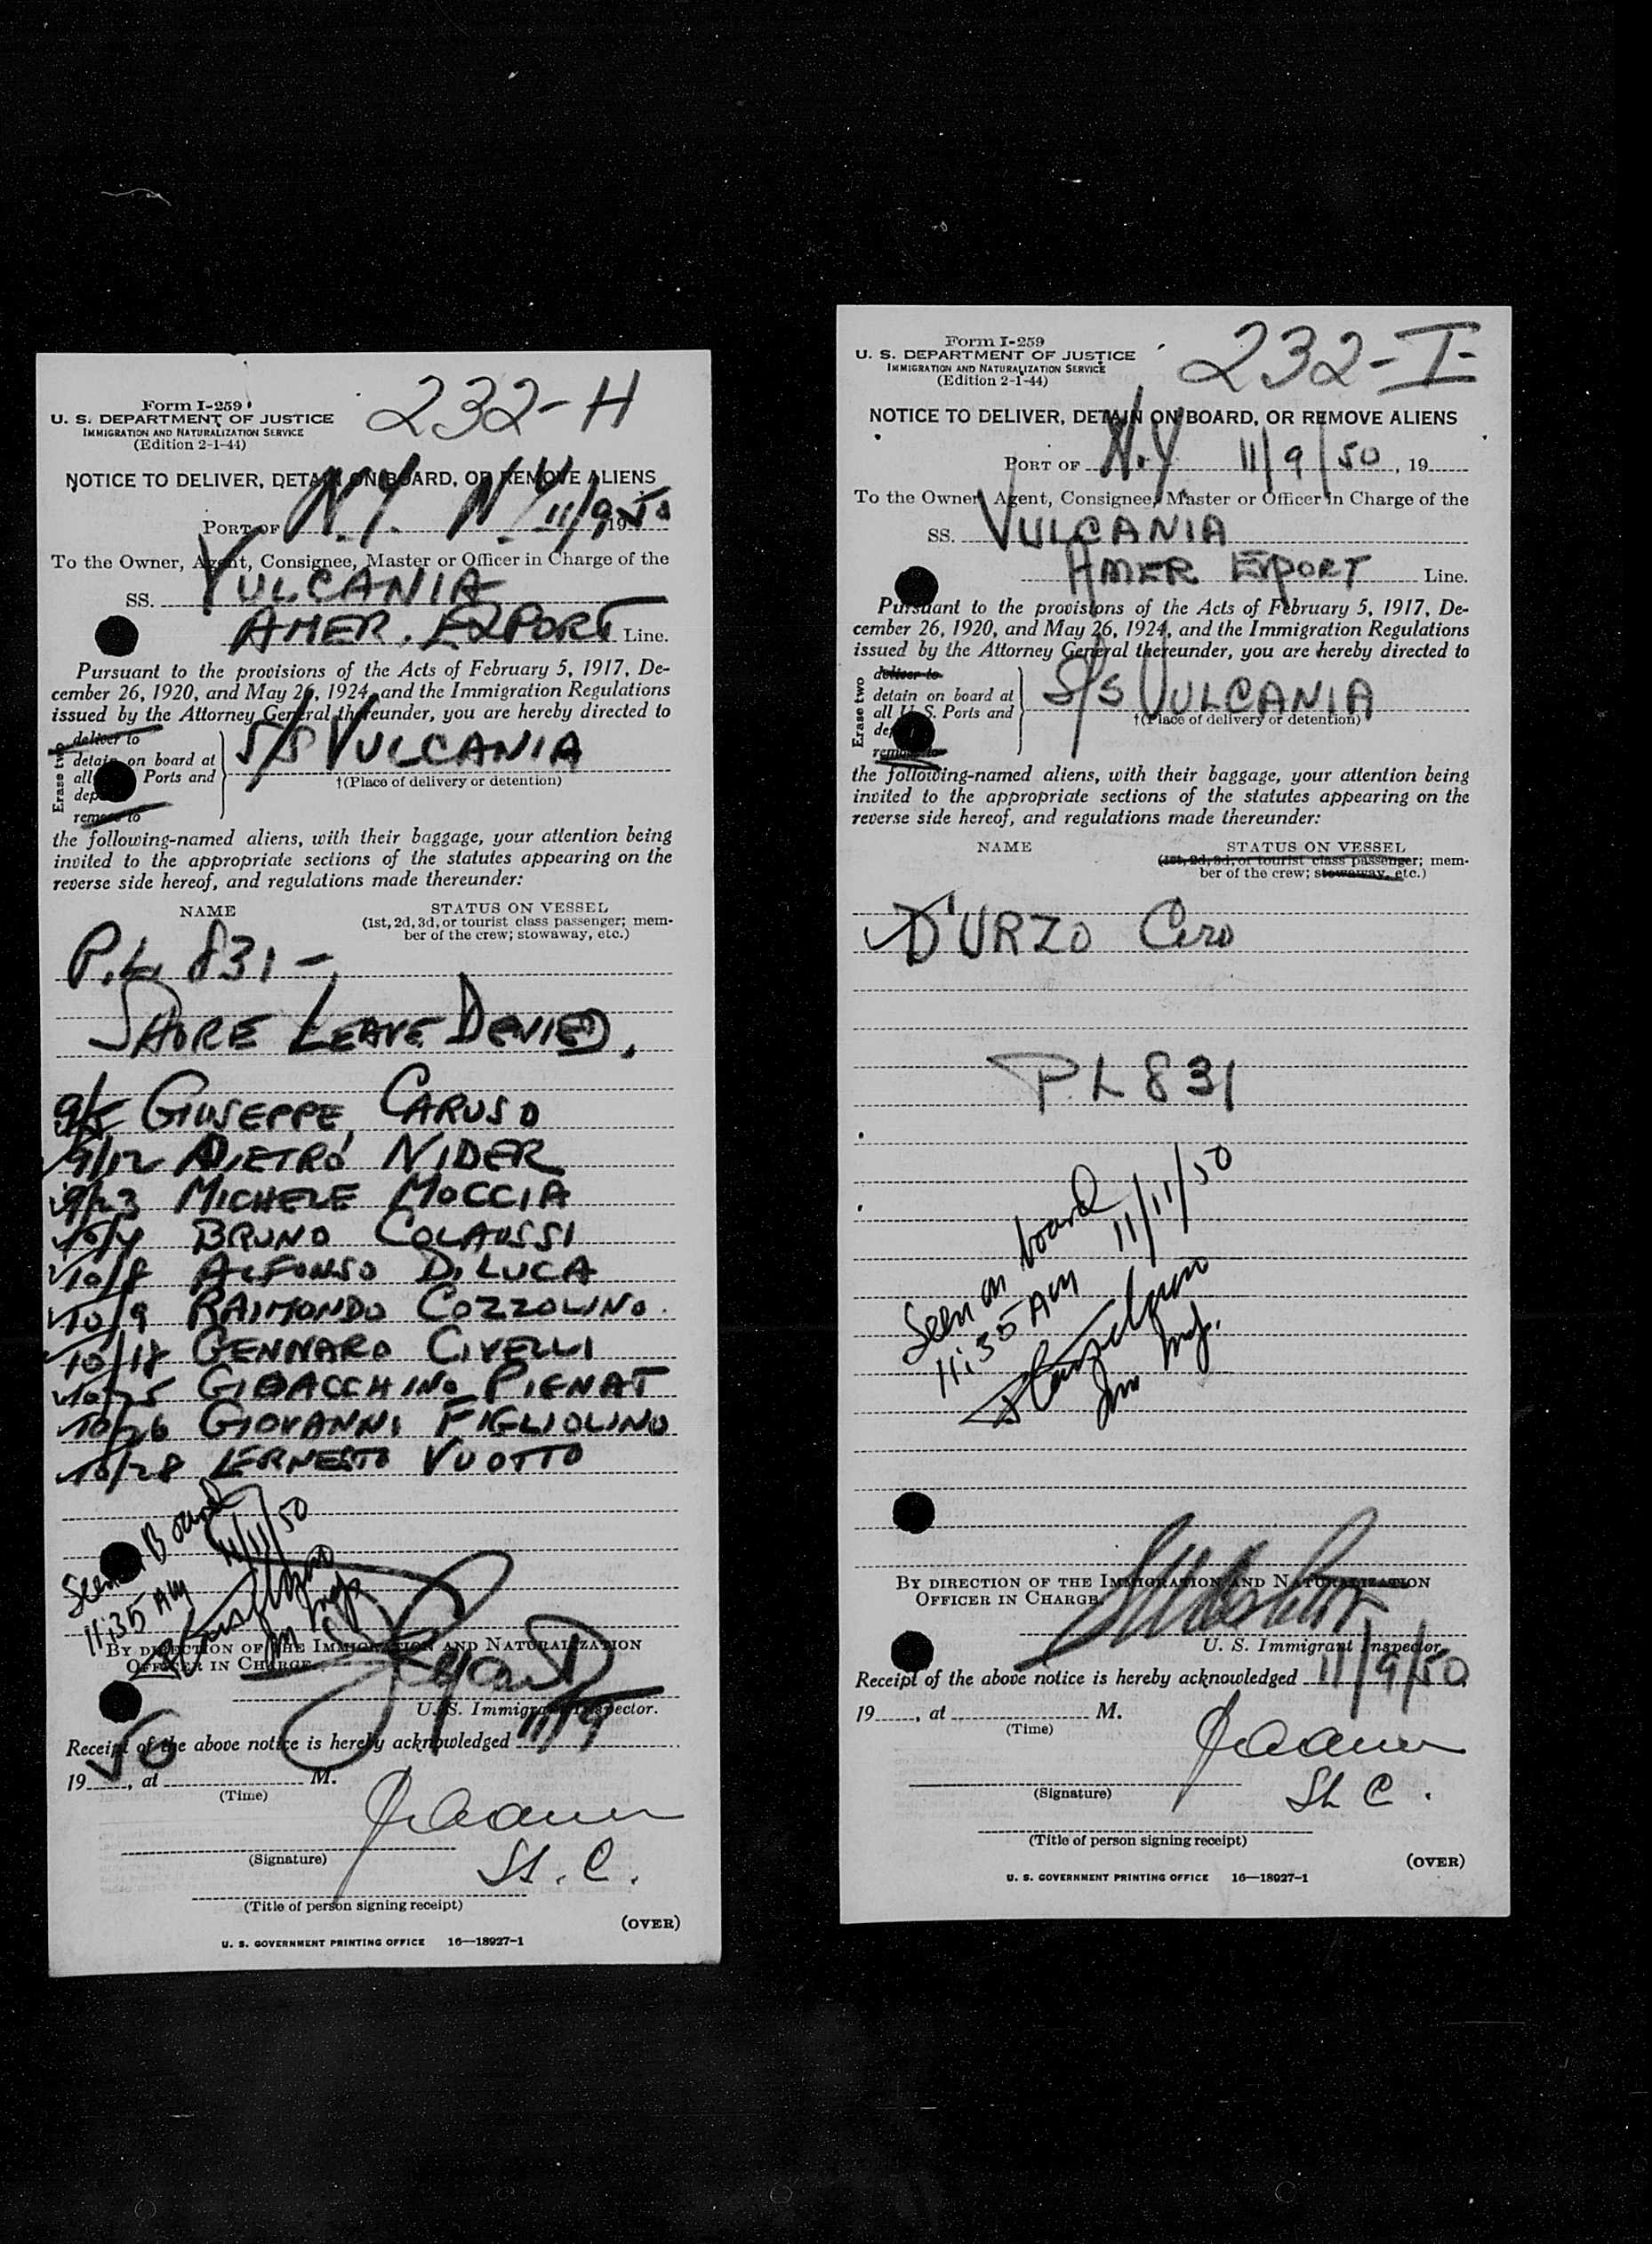 Form I-259
U. S. DEPARTMENT OF JUSTICE
IMMIGRATION AND NATURALIZATION SERVICE
(Edition 2-1-44)
232-H
NOTICE TO DELIVER, DETAIN ON BOARD, OR REMOVE ALIENS
PORT OF N.Y. N.Y 11/9 1950
To the Owner, Agent, Consignee, Master or Officer in Charge of the
SS. VULCANIA
AMER. EXPORT Line.
Pursuant to the provisions of the Acts of February 5, 1917, De-
cember 26, 1920, and May 26, 1924, and the Immigration Regulations
issued by the Attorney General thereunder, you are hereby directed to
Erase two
deliver to
detain on board at
all Ports and
remove to
S/S VULCANIA
†(Place of delivery or detention)
the following-named aliens, with their baggage, your attention being
invited to the appropriate sections of the statutes appearing on the
reverse side hereof, and regulations made thereunder:
NAME
STATUS ON VESSEL
(1st, 2d, 3d, or tourist class passenger; mem-
ber of the crew; stowaway, etc.)
P.L. 831 -
SHORE LEAVE DENIED.
9/5 GIUSEPPE CARUSO
9/12 PIETRO NIDER
9/23 MICHELE MOCCIA
10/4 BRUNO COLAUSSI
10/8 ALFONSO DI LUCA
10/9 RAIMONDO COZZOLINO.
10/18 GENNARO CIVELLI
10/25 GIOACCHINO PIENAT
10/26 GIOVANNI FIGLIOLINO
10/28 ERNESTO VUOTTO
Seen Board
11:35 AM 11/11/50
BY DIRECTION OF THE IMMIGRATION AND NATURALIZATION
OFFICER IN CHARGE
U. S. Immigrant Inspector.
Receipt of the above notice is hereby acknowledged 11/9
19 50, at M.
(Time)
(Signature)
St. C.
(Title of person signing receipt)
(OVER)
U. S. GOVERNMENT PRINTING OFFICE 16—18927-1
Form I-259
U. S. DEPARTMENT OF JUSTICE
IMMIGRATION AND NATURALIZATION SERVICE
(Edition 2-1-44)
232-I
NOTICE TO DELIVER, DETAIN ON BOARD, OR REMOVE ALIENS
PORT OF N.Y 11/9/50, 19
To the Owner, Agent, Consignee, Master or Officer in Charge of the
SS. VULCANIA
AMER EXPORT Line.
Pursuant to the provisions of the Acts of February 5, 1917, De-
cember 26, 1920, and May 26, 1924, and the Immigration Regulations
issued by the Attorney General thereunder, you are hereby directed to
Erase two
deliver to
detain on board at
all U. S. Ports and
remove to
S/S VULCANIA
†(Place of delivery or detention)
the following-named aliens, with their baggage, your attention being
invited to the appropriate sections of the statutes appearing on the
reverse side hereof, and regulations made thereunder:
NAME
STATUS ON VESSEL
(1st, 2d, 3d, or tourist class passenger; mem-
ber of the crew; stowaway, etc.)
D'URZO Ciro
P.L 831
Seen on board
11:35 AM 11/11/50
BY DIRECTION OF THE IMMIGRATION AND NATURALIZATION
OFFICER IN CHARGE.
U. S. Immigrant Inspector
Receipt of the above notice is hereby acknowledged 11/9/50
19, at M.
(Time)
(Signature)
St C.
(Title of person signing receipt)
(OVER)
U. S. GOVERNMENT PRINTING OFFICE 16—18927-1